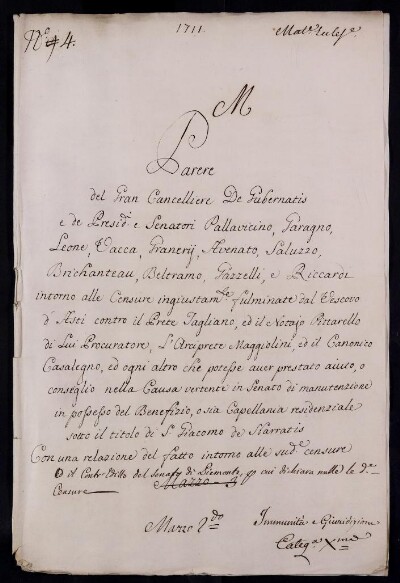 1711.
Nº 4.
M
Parere
del Gran Cancelliere De Gubernatis
e de Presid.ti e Senatori Pallavicino, Garagno,
Leone, Vacca, Franerij, Avenato, Saluzzo,
Brichanteau, Beltramo, Gazzelli, e Riccardi
intorno alle Censure ingiustam.te fulminate dal Vescovo
d'Asti contro il Prete Tagliano, ed il Notajo Pittarello
di Lui Procuratore, L'Arciprete Maggiolini, ed il Canonico
Casalegno, ed ogni altro che potesse aver prestato aiuto, o
conseglio nella Causa vertente in Senato di manutenzione
in possesso del Benefizio, o sia Capellania residenziale
sotto il titolo di S. Giacomo de Narratis
Con una relazione del fatto intorno alle sud.e censure
e il Contr'Editto del Senato di Piemonte, cui dichiara nulle le d.e
Censure
Marzo 2.do
Immunità e Giurisdizione
Categ.a X.ma